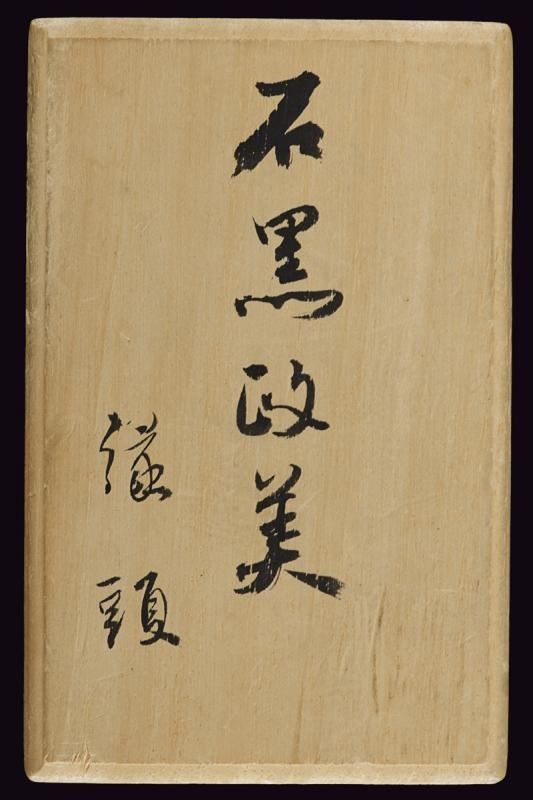 石黒政美
縁頭